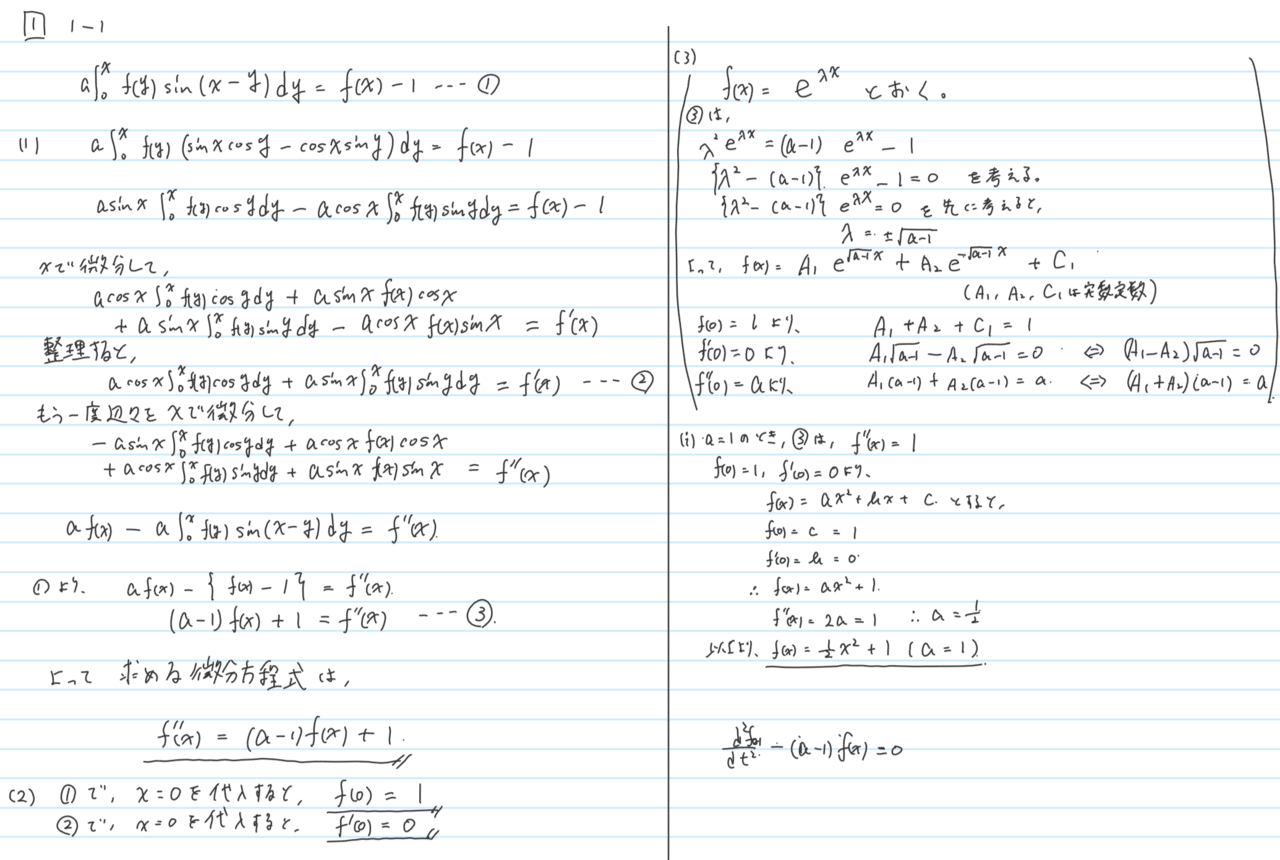 1 1-1
a∫₀ˣ f(y) sin(x-y)dy = f(x)-1 --- ①
(1) a∫₀ˣ f(y)(sinx cosy - cosx siny)dy = f(x)-1
asinx∫₀ˣ f(y)cosydy - acosx∫₀ˣ f(y)sinydy = f(x)-1
xで微分して,
acosx∫₀ˣ f(y)cosydy + asinx f(x)cosx
+ asinx∫₀ˣ f(y)sinydy - acosx f(x)sinx = f'(x)
整理すると,
acosx∫₀ˣ f(y)cosydy + asinx∫₀ˣ f(y)sinydy = f'(x) --- ②
もう一度辺々をxで微分して,
-asinx∫₀ˣ f(y)cosydy + acosx f(x)cosx
+ acosx∫₀ˣ f(y)sinydy + asinx f(x)sinx = f''(x)
af(x) - a∫₀ˣ f(y)sin(x-y)dy = f''(x).
①より. af(x) - {f(x)-1} = f''(x).
(a-1)f(x)+1 = f''(x) --- ③.
よって 求める微分方程式は,
f''(x) = (a-1)f(x)+1.
(2) ①で, x=0を代入すると, f(0) = 1
②で, x=0を代入すると. f'(0) = 0
(3)
f(x) = e^{λx} とおく。
③は,
λ²e^{λx} = (a-1) e^{λx} - 1
{λ²-(a-1)} e^{λx} - 1 = 0 を考える。
{λ²-(a-1)} e^{λx} = 0 を先に考えると,
λ = ±√(a-1)
よって, f(x) = A₁e^{√(a-1)x} + A₂e^{-√(a-1)x} + C₁
(A₁, A₂, C₁は実数定数)
f(0) = 1 より、 A₁+A₂+C₁ = 1
f'(0) = 0 より、 A₁√(a-1) - A₂√(a-1) = 0 ⇔ (A₁-A₂)√(a-1) = 0
f''(0) = aより、 A₁(a-1)+A₂(a-1) = a. ⇔ (A₁+A₂)(a-1) = a
(i) a=1のとき, ③は, f''(x) = 1
f(0)=1, f'(0)=0より、
f(x) = ax²+bx+c. とすると,
f(0) = c = 1
f'(0) = b = 0.
∴ f(x) = ax²+1.
f''(x) = 2a = 1 ∴ a = 1/2
以上より、 f(x) = 1/2 x²+1 (a=1).
d²f(x)/dt² - (a-1)f(x) = 0